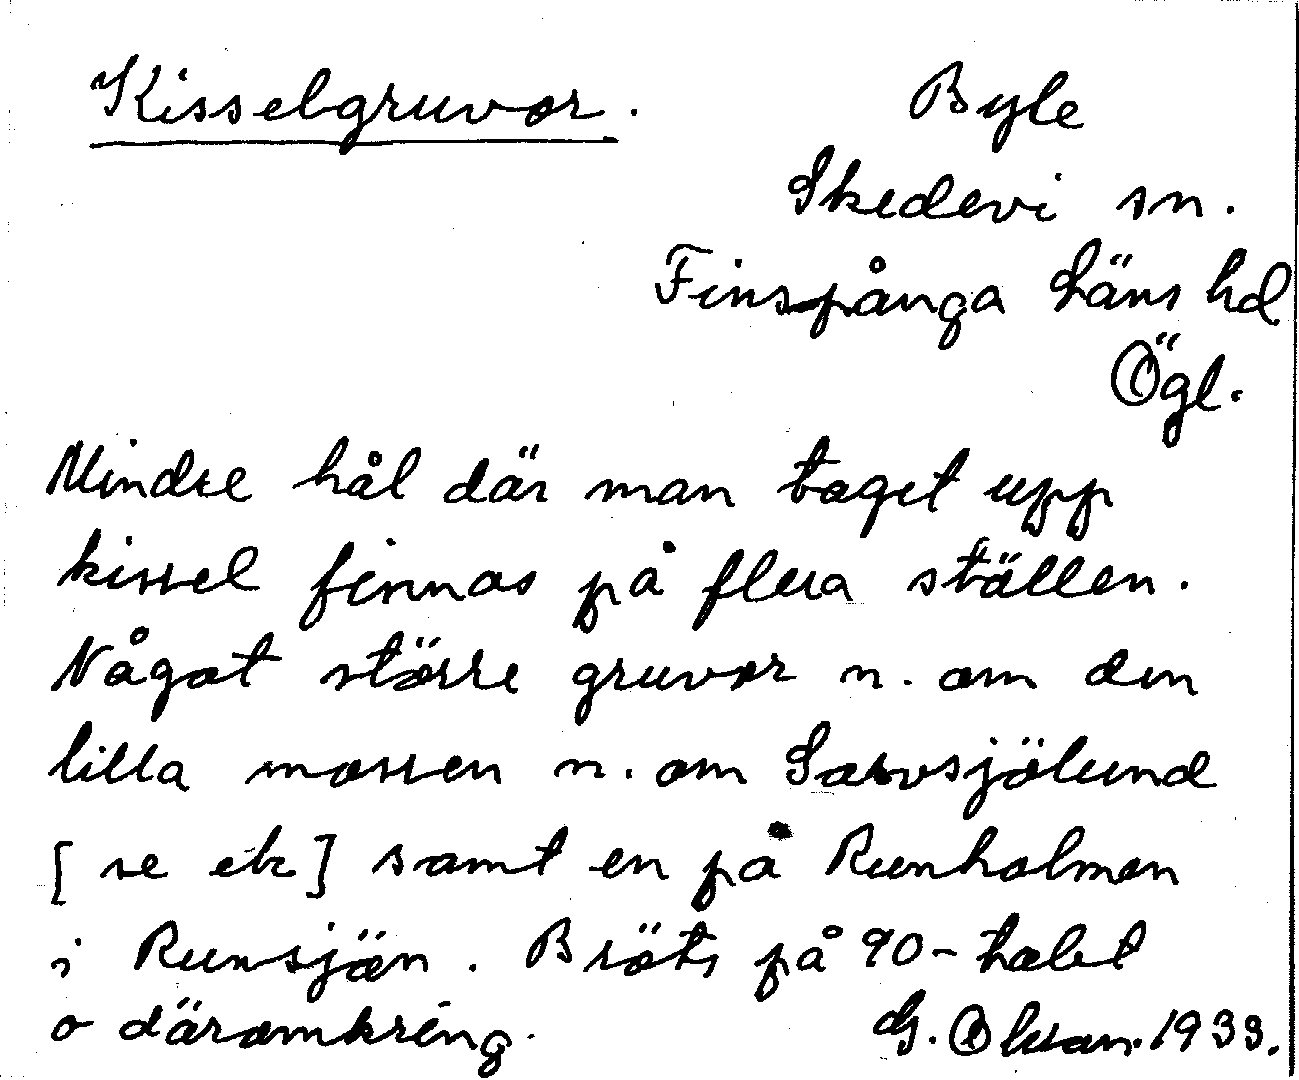 Kisselgruvor.
Byle
Skedevi sn.
Finspånga läns hd
Ögl.
Mindre hål där man taget upp
kissel finnas på flera ställen.
Något större gruvor n. om den
lilla mossen n. om Sarvsjölund
[se ek] samt en på Runholmen
i Runsjön. Bröts på 90-talet
o däromkring.
G. Olsson. 1933.